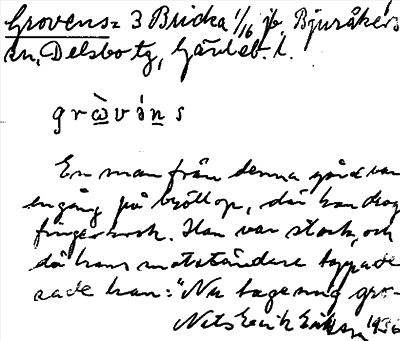 Grovens= 3 Bricka 1/16 jb. Bjuråkers
sn, Delsbo tg, Gävleb. l.
gròvóns
En man från denna gård var
engång på bröllop, där han drog
fingerkrok. Han var stark, och
då hans motståndare tappade
sade han: "Nu tage mig gro-
Nils Erik Eriksson 1936